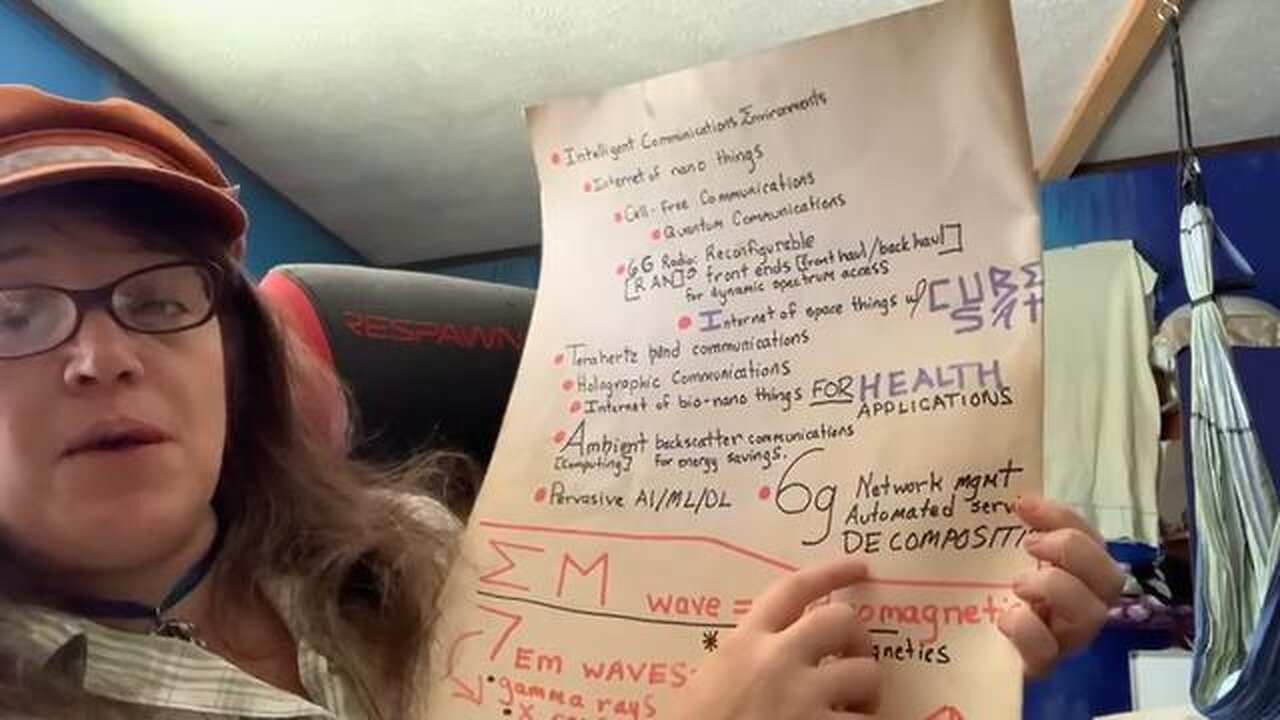 RESPAWN
Intelligent Communications Environments
Internet of nano things
Cell-free Communications
Quantum Communications
6G Radio: Reconfigurable
[RAN] front ends [front haul/back haul]
for dynamic spectrum access
Internet of space things w/ CUBE
SAT
Terahertz band communications
Holographic Communications
Internet of bio-nano things FOR HEALTH
APPLICATIONS
Ambient backscatter communications
[computing] for energy savings.
Pervasive AI/ML/DL
6g Network mgmt
Automated servi
DECOMPOSITI
ΣM wave = omagnetic
* gnetics
EM WAVES:
gamma rays
X